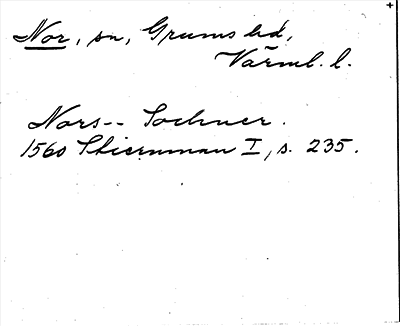 Nor, sn, Grums hd,
Värml. l.
Nors-- Sochner.
1560 Stiernman I, s. 235.